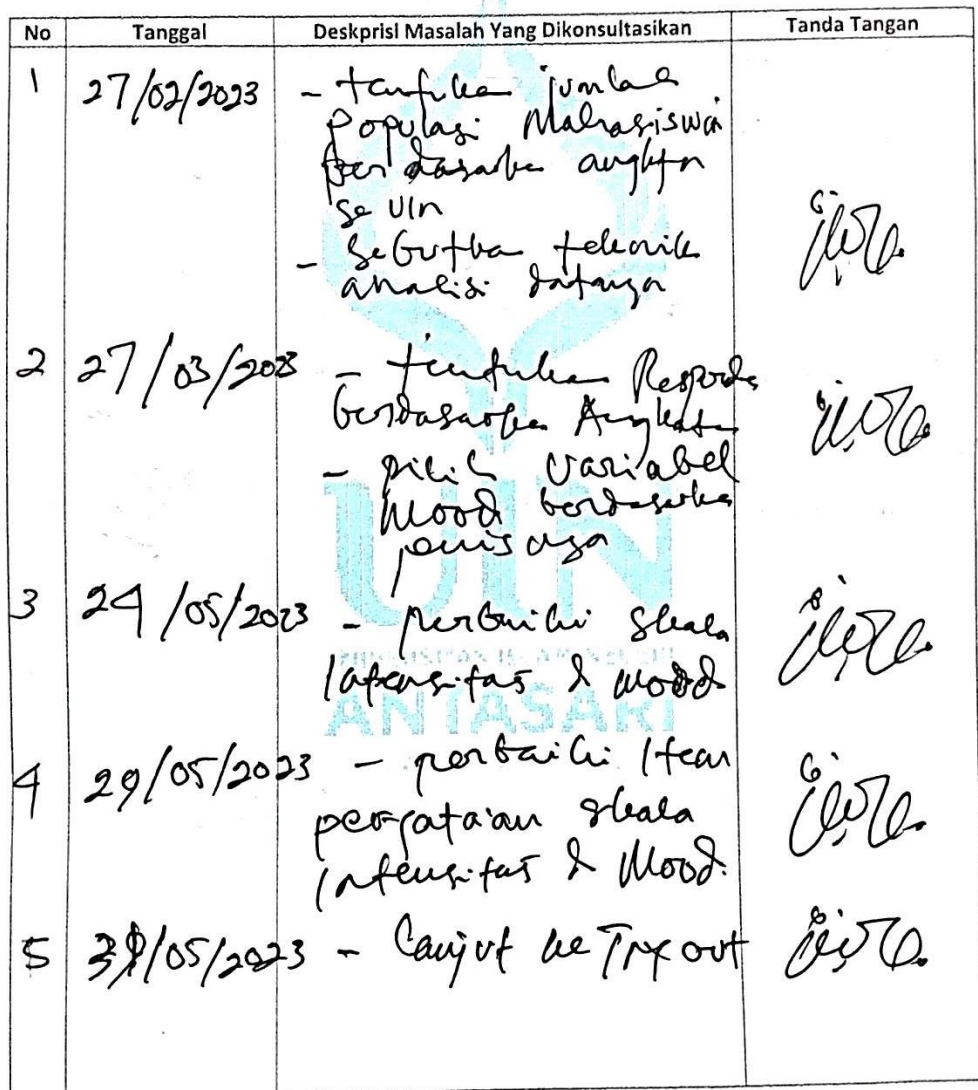 No Tanggal Deskprisi Masalah Yang Dikonsultasikan Tanda Tangan
1 27/02/2023 - tentukan jumlah
Populasi Mahasiswa
berdasarkan angktn
se UIN
- Sebutkan teknik
analisi datanya
2 27/03/2023 - tentukan Responden
berdasarkan Angkatan
- pilih variabel
Mood berdasarkan
UIN
3 24/05/2023 - perbaiki Skala
Intensitas & mood
ANTASARI
4 29/05/2023 - perbaiki Item
pernyataan skala
intensitas & Mood.
5 /05/2023 - Lanjut ke Try out